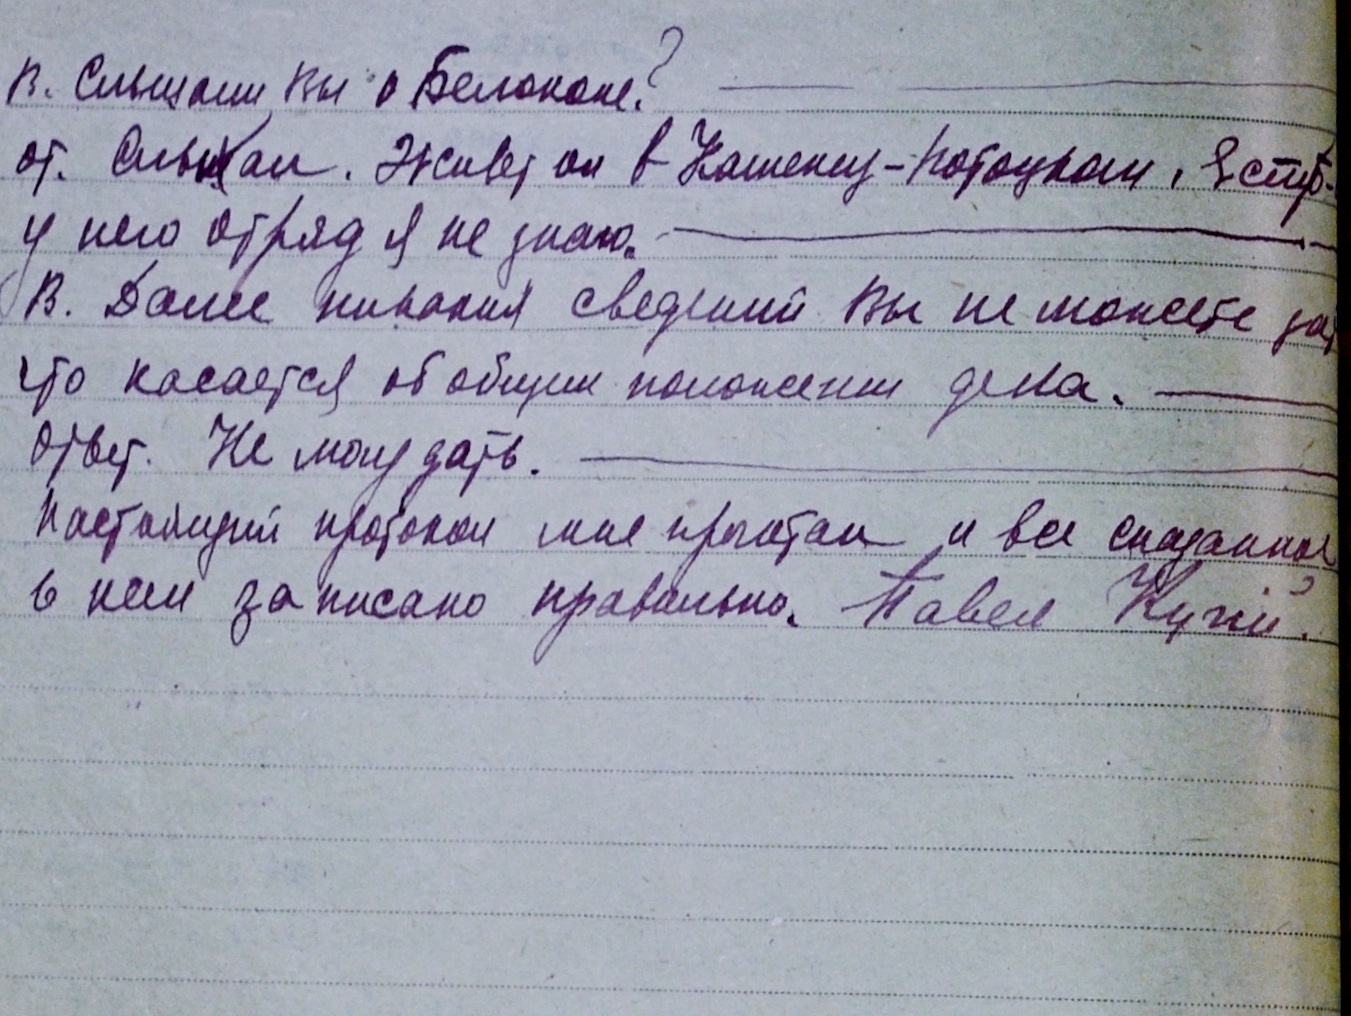 В. Слышали Вы о Белоконе?
от. Слыхал. Живет он в Каменец-Потоцком, Есть
у него отряд я не знаю.
В. Далее никакия сведений Вы не можете
что касается об общем положении дела.
Ответ. Не могу дать.
Настоящий протокол мне прочитан и все сказанное
в нем записано правильно. Павел